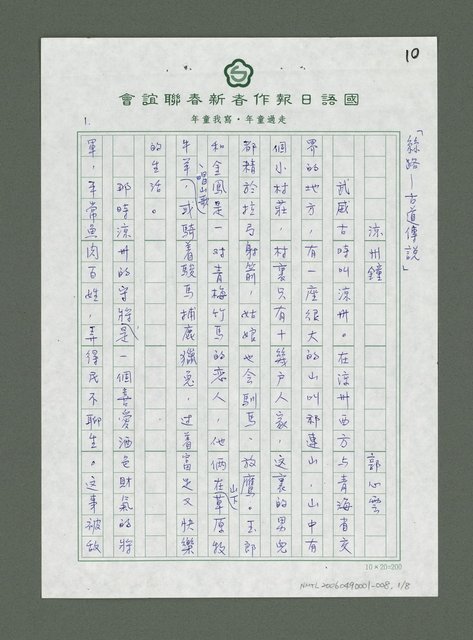 10
國語日報作者新春聯誼會
走過童年・寫我童年
1.
「絲路—古道傳說」
涼州鐘　郭心雲
武威古時叫涼州。在涼州西方与青海省交
界的地方，有一座很大的山叫祁連山，山中有
個小村莊，村裏只有十幾戶人家，這裏的男兒
都精於拉弓射箭，姑娘也会馴馬、放鷹。玉郎
和金鳳是一对青梅竹馬的恋人，他俩在山下草原牧
牛羊、唱山歌，或騎着駿馬捕鹿獵兎，过着富足又快樂
的生活。
那時涼州的守将是一個喜愛酒色財氣的将
軍，平常魚肉百姓，弄得民不聊生。這事被敌
10×20=200
NMTL20060490001-008, 1/8